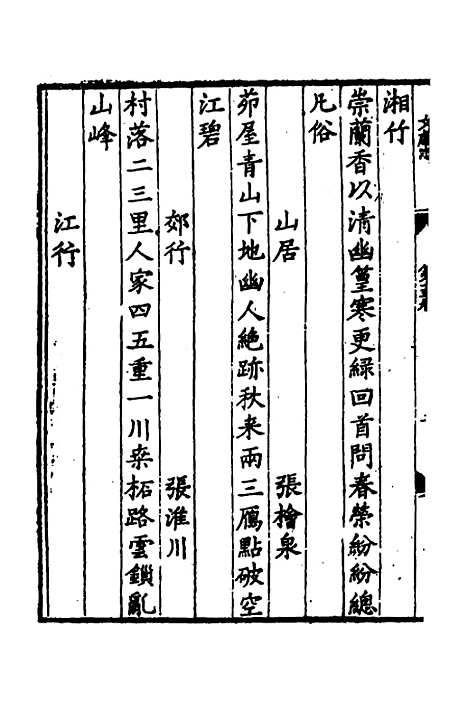 湘竹
崇蘭香以清幽篁寒更綠回首問春榮紛紛總
凡俗
山居 張檜泉
茆屋青山下地幽人絶跡秋来兩三鴈點破空
江碧
郊行 張淮川
村落二三里人家四五重一川桒柘路雲鎖亂
山峰
江行